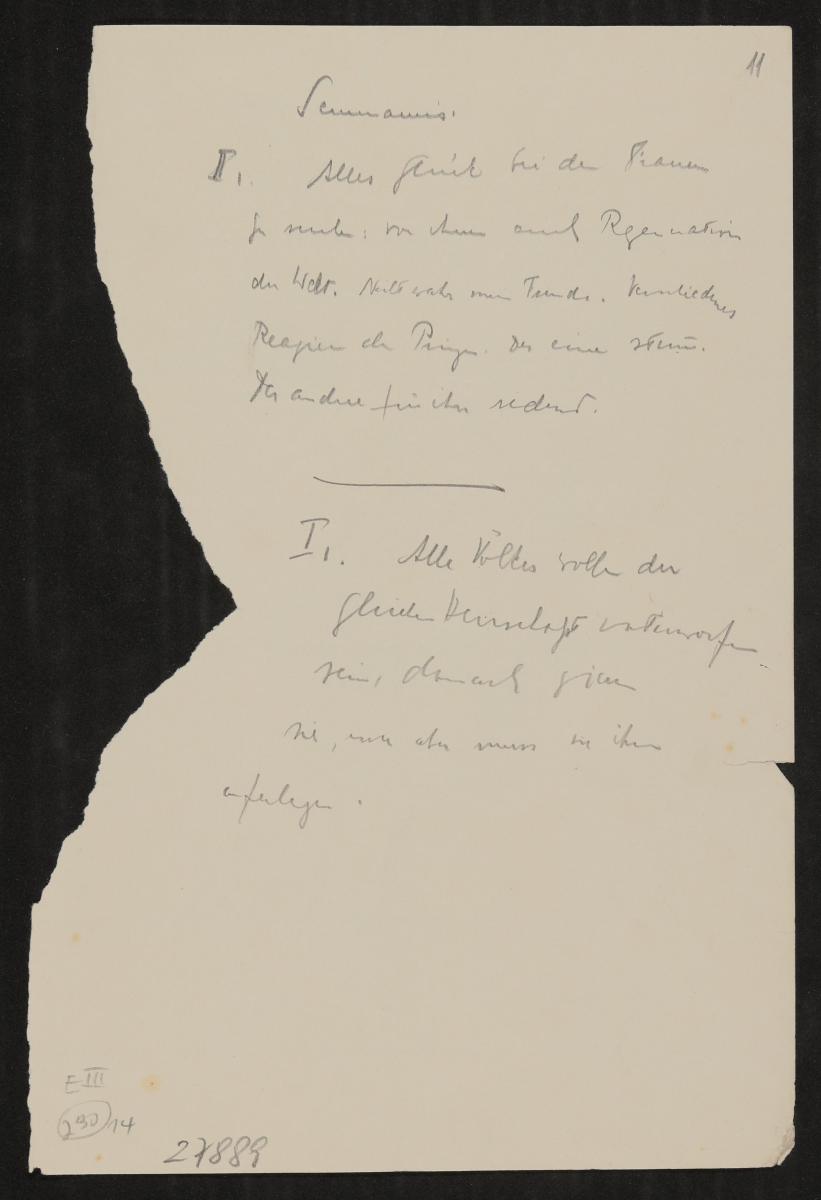 11
Semiramis.
II 1. Alles Glück bei den Frauen
zu suchen: von ihnen auch Regeneration
der Welt. Verschiedenes
Reagieren der Der eine stumm.
Der andere für ihn redend.
I 1. Alle Völker wollen der
gleichen Herrschaft unterworfen
sein, danach
sie, nun aber muss sie ihnen
auferlegen.
E III
230 14
27889